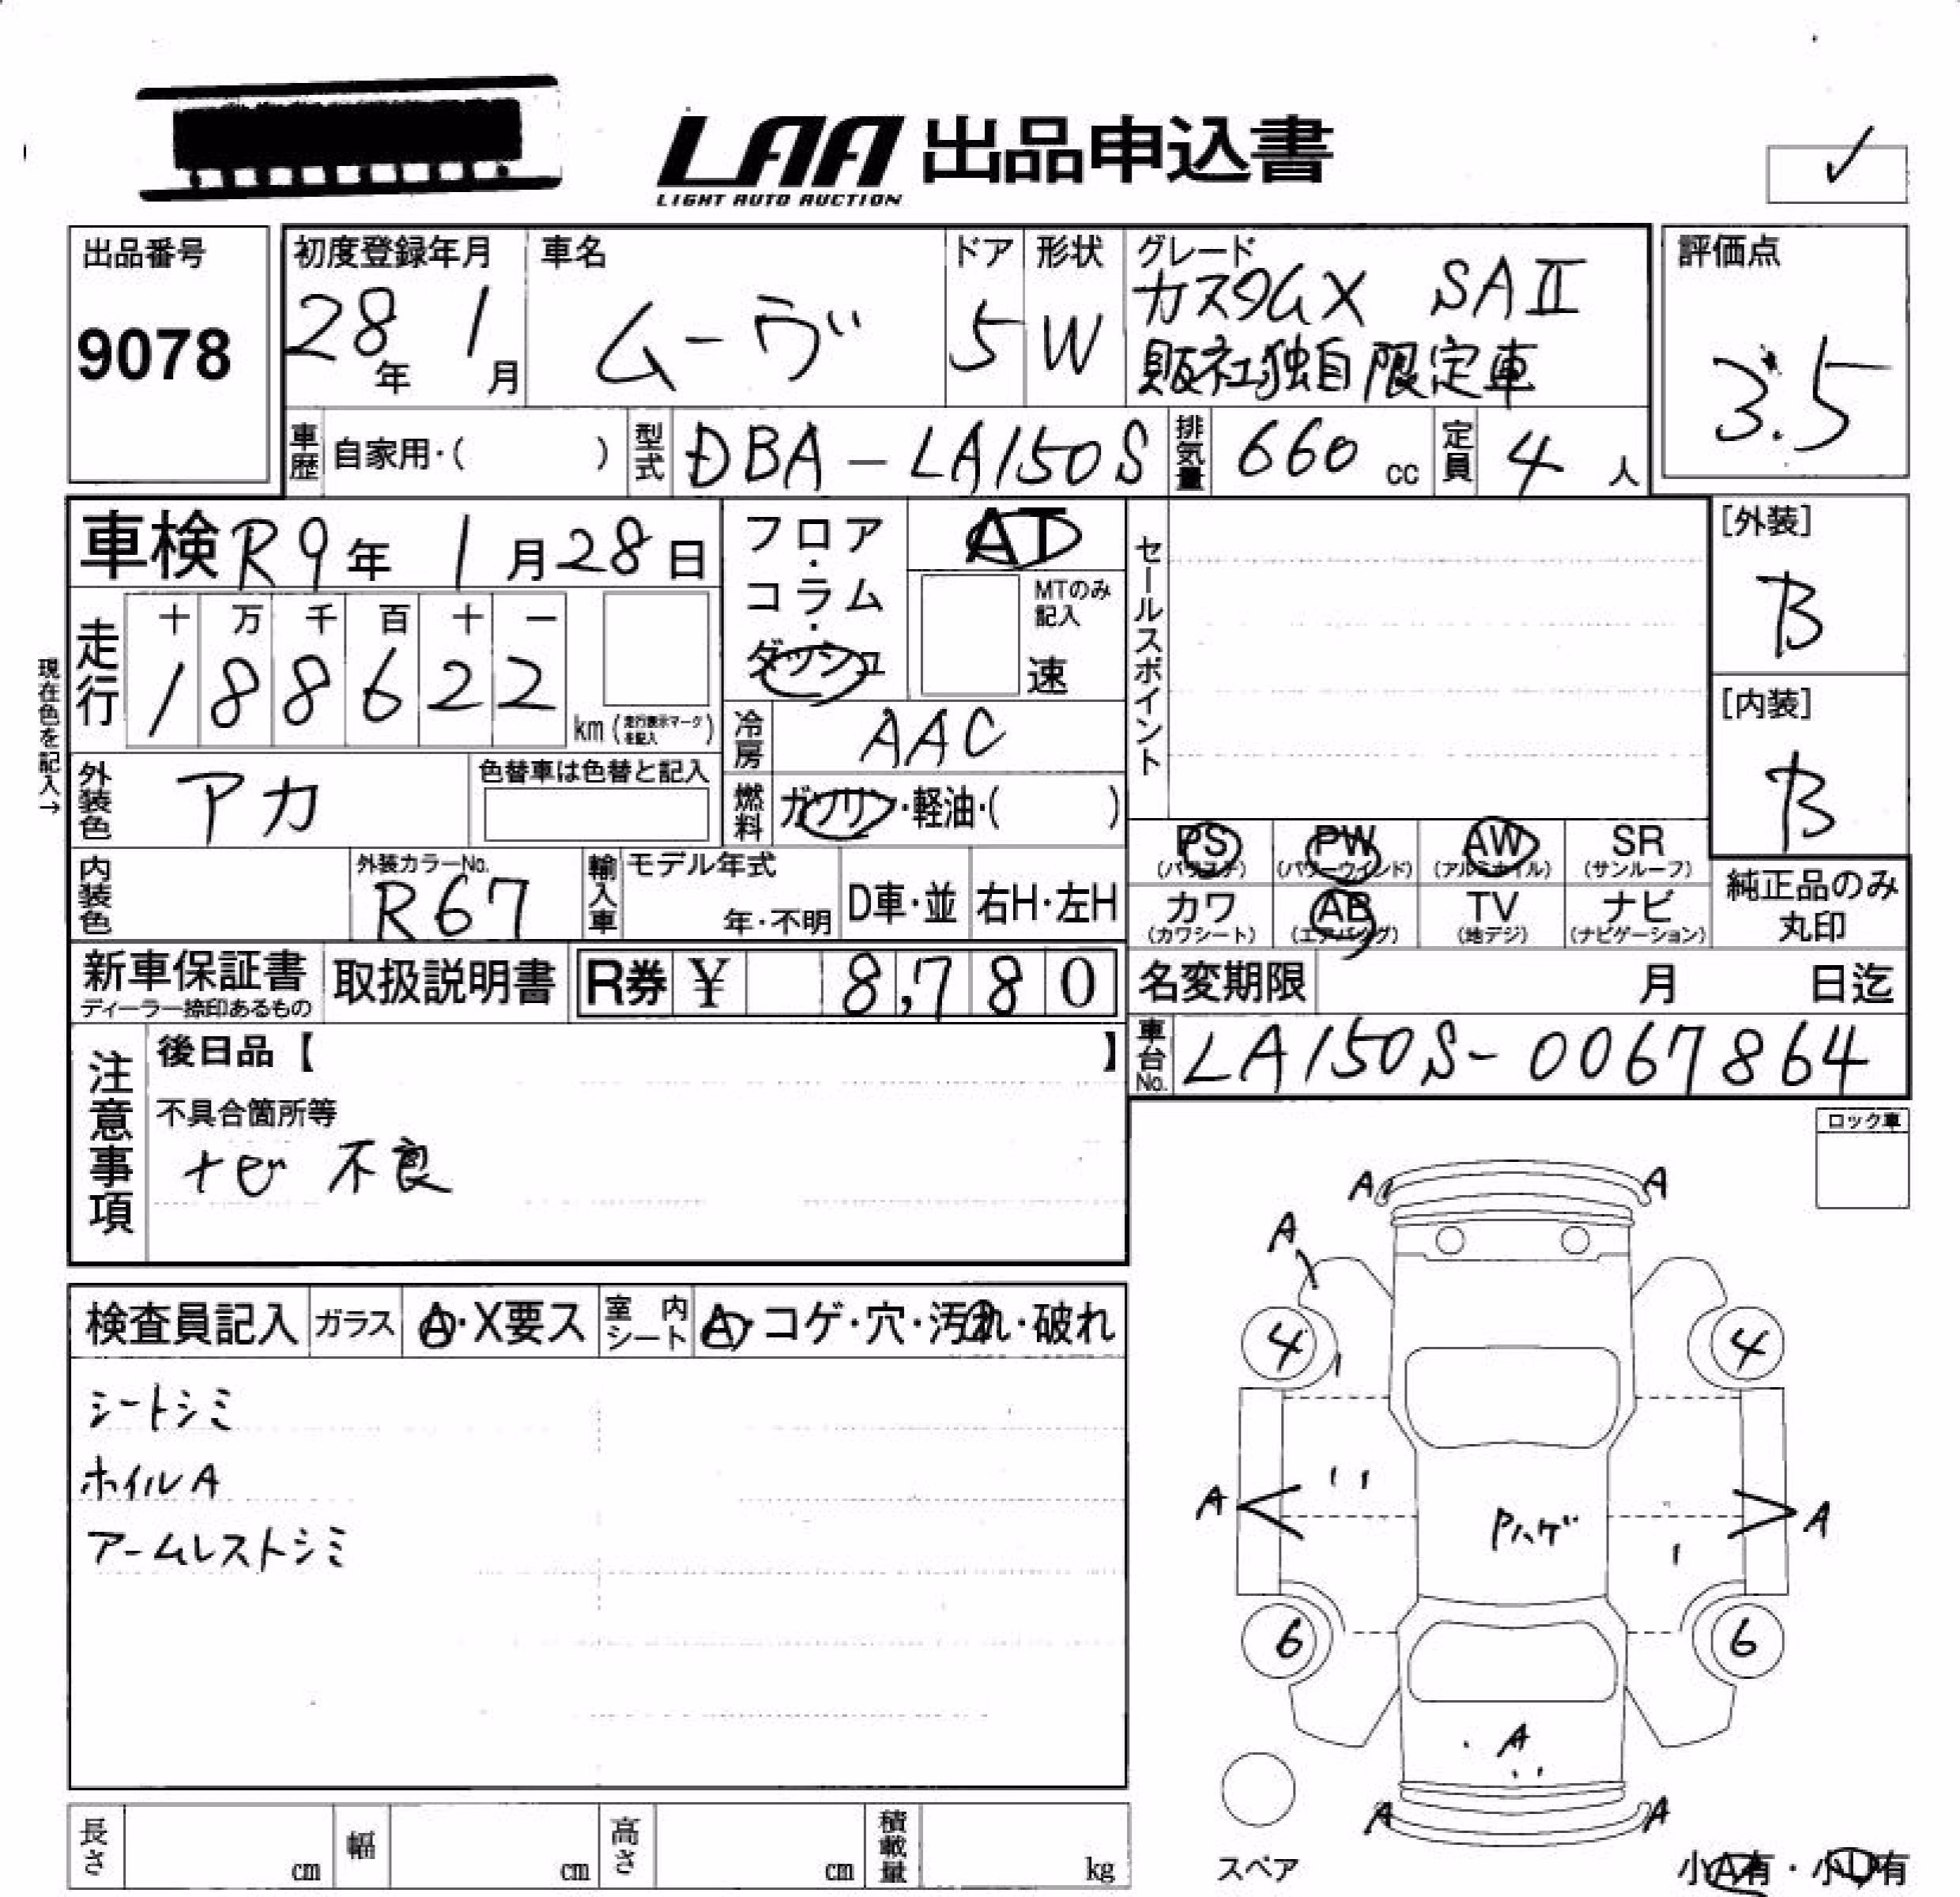 LAA 出品申込書
LIGHT AUTO AUCTION
出品番号
9078
初度登録年月
28年 1月
車名
ムーヴ
ドア
5
形状
W
グレード
カスタムX SAⅡ
販社独自限定車
評価点
3.5
車歴 自家用・( )
型式 DBA-LA150S
排気量 660 cc
定員 4 人
車検 R9年 1月28日
フロア・コラム・ダッシュ
AT
MTのみ記入
速
セールスポイント
[外装]
B
[内装]
B
現在色を記入→
走行
十 万 千 百 十 一
1 8 8 6 2 2
km (走行表示マークを記入)
冷房 AAC
外装色 アカ
色替車は色替と記入
燃料 ガソリン・軽油・( )
内装色
外装カラーNo.
R67
輸入車
モデル年式
年・不明
D車・並
右H・左H
PS (パワステ)
PW (パワーウインド)
AW (アルミホイル)
SR (サンルーフ)
カワ (カワシート)
AB (エアバッグ)
TV (地デジ)
ナビ (ナビゲーション)
純正品のみ
丸印
新車保証書
ディーラー捺印あるもの
取扱説明書
R券 ¥ 8,780
名変期限 月 日迄
車台No. LA150S-0067864
注意事項
後日品【 】
不具合箇所等
ナビ 不良
ロック車
検査員記入
ガラス A・X要ス
室内シート A・コゲ・穴・汚れ・破れ
シートシミ
ホイルA
アームレストシミ
A A
A
4 4
A A
Pハゲ
6 6
A
A A
スペア
小A有・小U有
長さ cm
幅 cm
高さ cm
積載量 kg